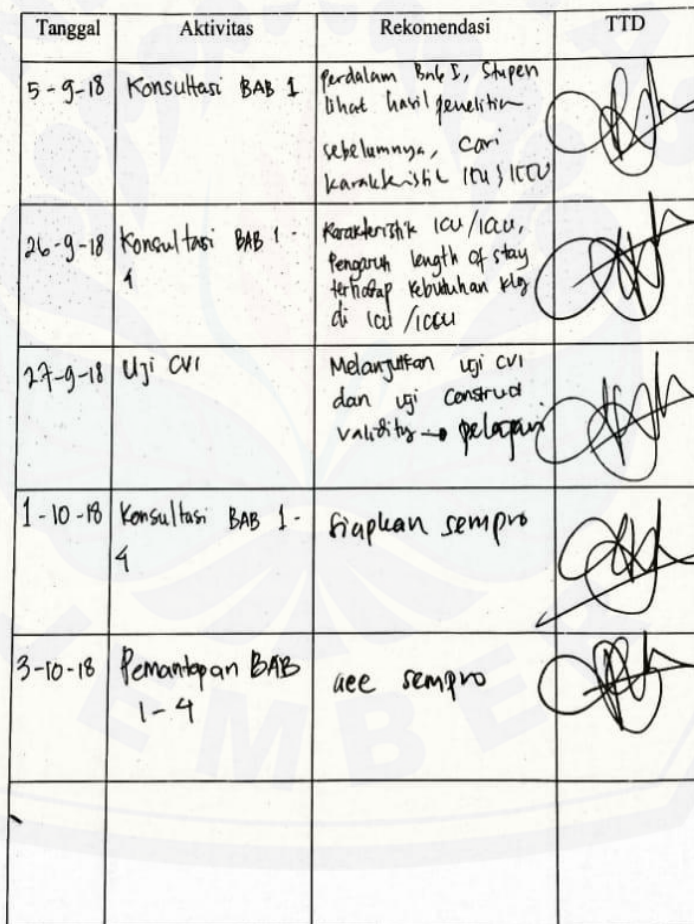 Tanggal Aktivitas Rekomendasi TTD
5-9-18 Konsultasi BAB 1 Perdalam Bab I, Stupen
lihat hasil penelitian
sebelumnya, cari
karakteristik ICU & ICCU
26-9-18 Konsultasi BAB 1 -
4
Karakteristik ICU/ICCU,
Pengaruh length of stay
terhadap kebutuhan klg
di ICU/ICCU
27-9-18 Uji CVI Melanjutkan uji CVI
dan uji construct
validity →
1-10-18 Konsultasi BAB 1 - Siapkan sempro
4
3-10-18 Pemantapan BAB acc sempro
1-4
JEMBER